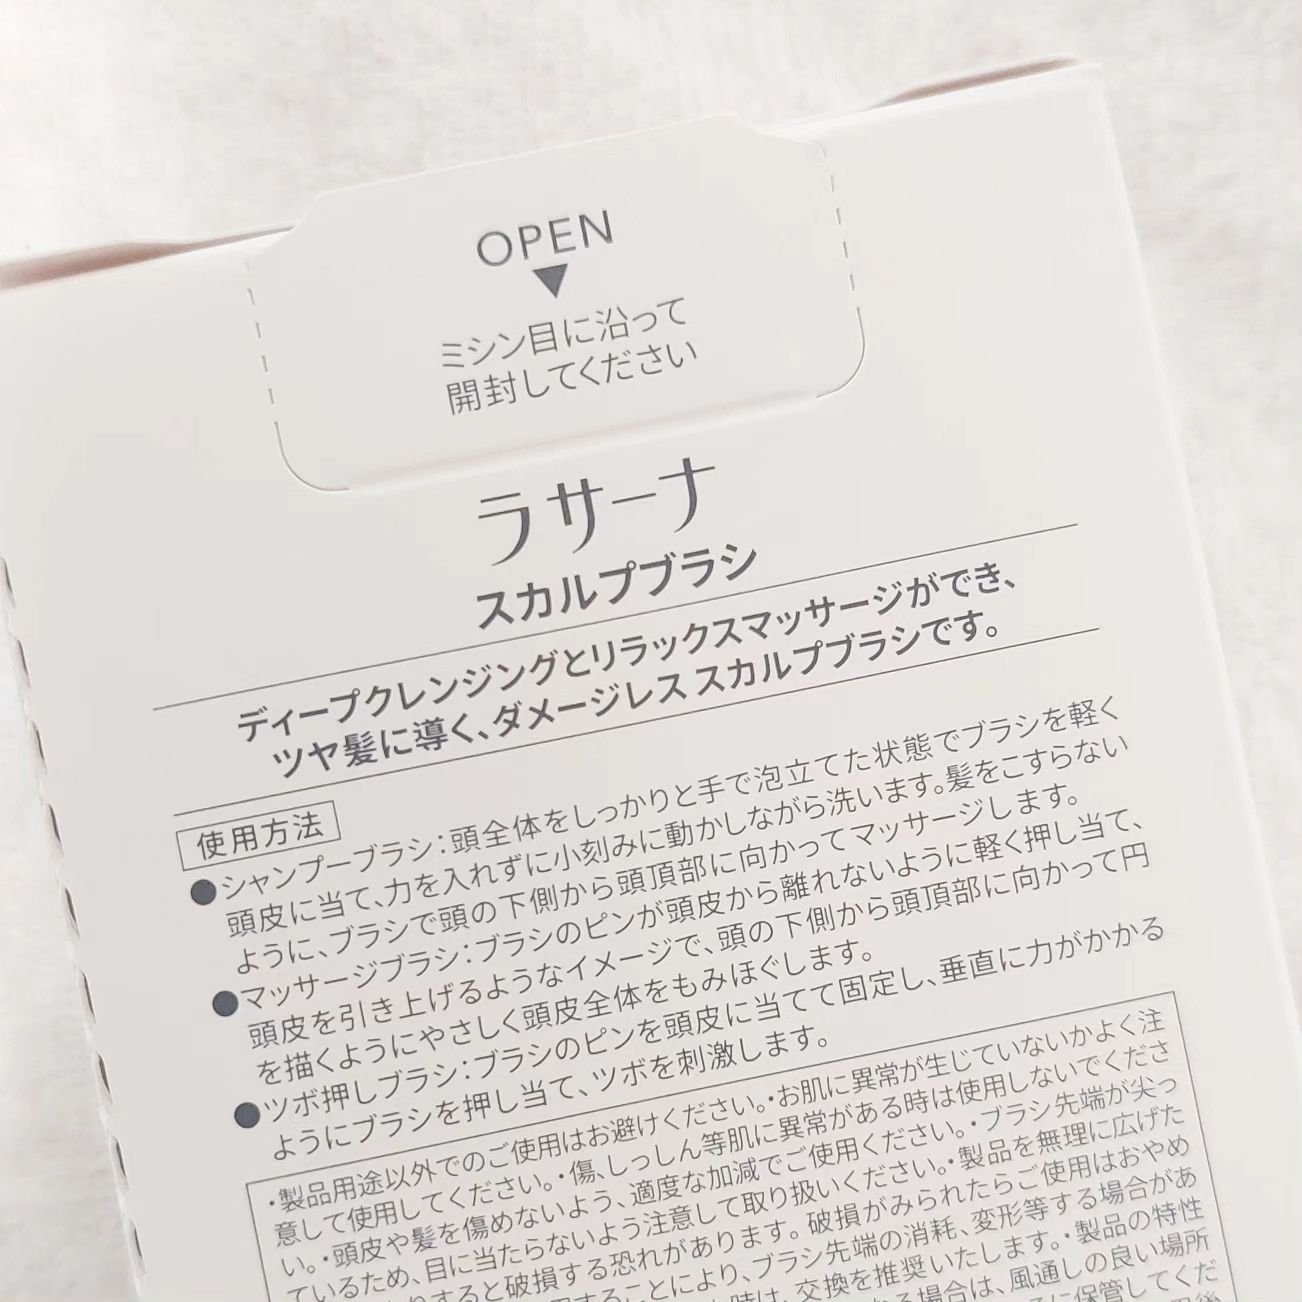 OPEN
▼
ミシン目に沿って
開封してください
ラサーナ
スカルプブラシ
ディープクレンジングとリラックスマッサージができ、
ツヤ髪に導く、ダメージレス スカルプブラシです。
使用方法
●シャンプーブラシ：頭全体をしっかりと手で泡立てた状態でブラシを軽く
頭皮に当て、力を入れずに小刻みに動かしながら洗います。髪をこすらない
ように、ブラシで頭の下側から頭頂部に向かってマッサージします。
●マッサージブラシ：ブラシのピンが頭皮から離れないように軽く押し当て、
頭皮を引き上げるようなイメージで、頭の下側から頭頂部に向かって円
を描くようにやさしく頭皮全体をもみほぐします。
●ツボ押しブラシ：ブラシのピンを頭皮に当てて固定し、垂直に力がかかる
ようにブラシを押し当て、ツボを刺激します。
・製品用途以外でのご使用はお避けください。・お肌に異常が生じていないかよく注
意して使用してください。・傷、しっしん等肌に異常がある時は使用しないでくださ
い。・頭皮や髪を傷めないよう、適度な加減でご使用ください。・ブラシ先端が尖っ
ているため、目に当たらないよう注意して取り扱いください。・製品を無理に広げた
りすると破損する恐れがあります。破損がみられたらご使用はおやめ
することにより、ブラシ先端の消耗、変形等する場合があ
時は、交換を推奨いたします。・製品の特性
る場合は、風通しの良い場所
に保管してくだ